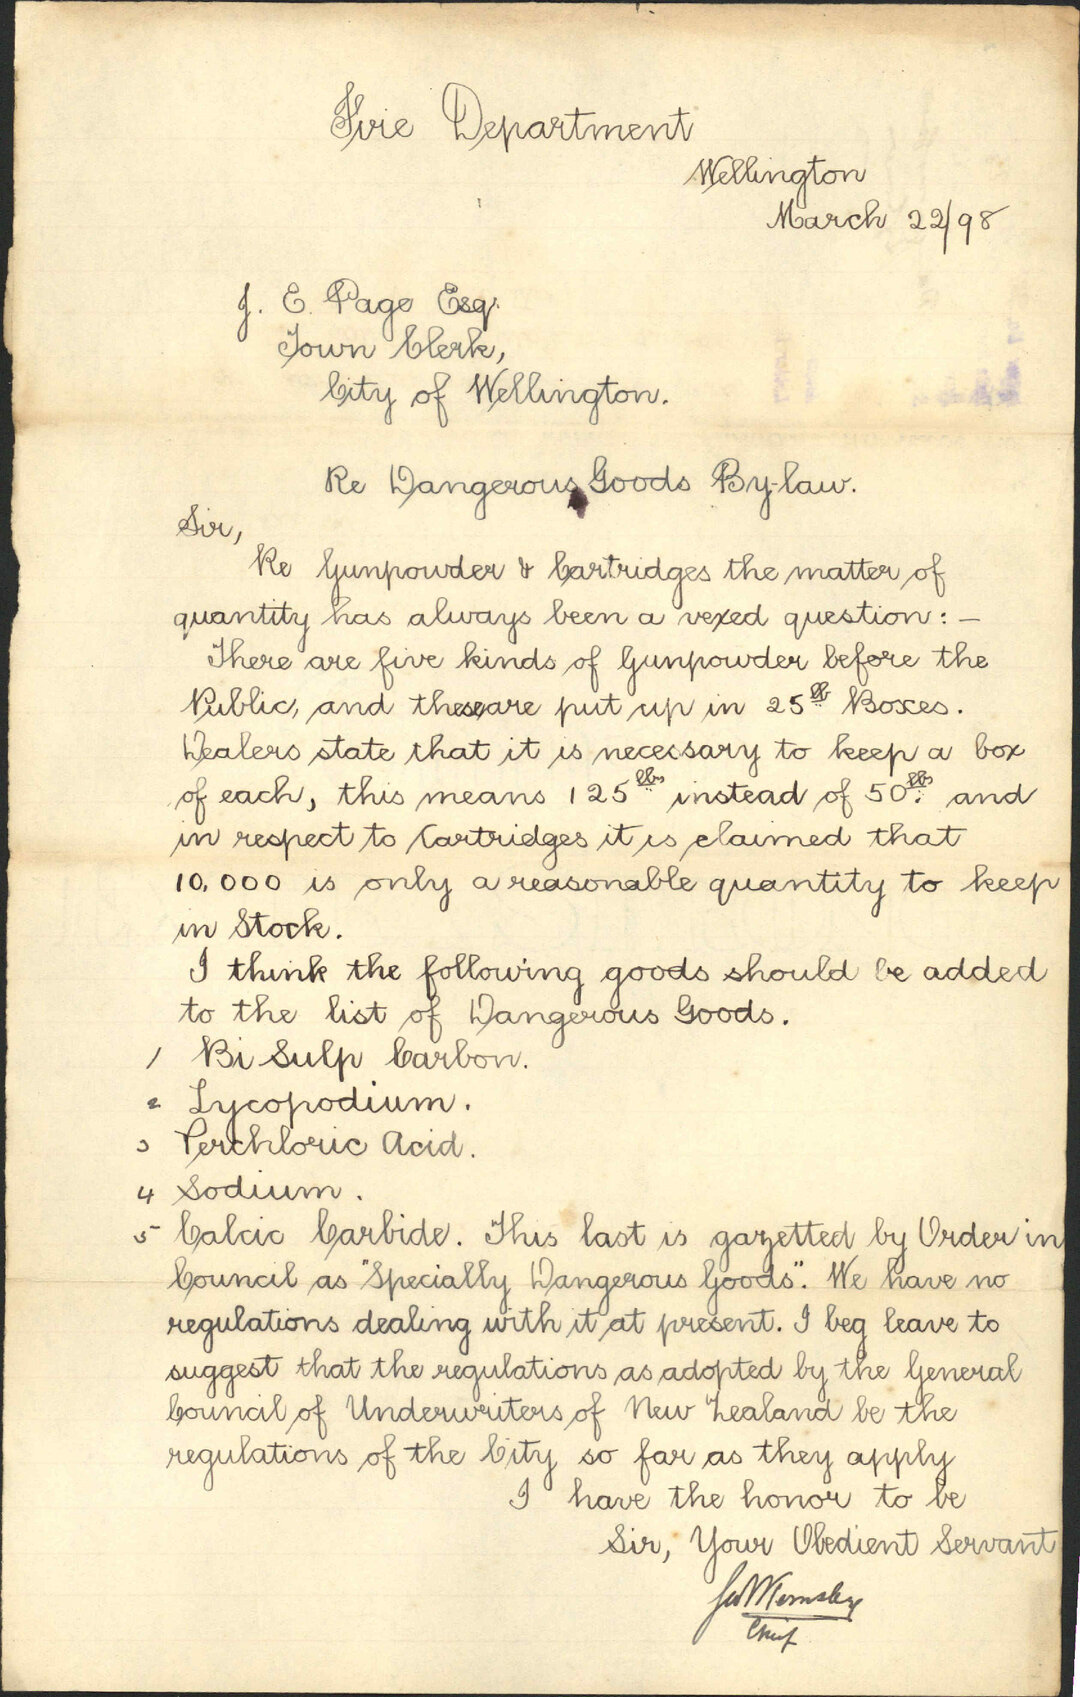 Fire Department
Wellington
March 22/98
J. E. Page Esq.
Town Clerk,
City of Wellington.
Re Dangerous Goods By-law.
Sir,
Re Gunpowder & Cartridges the matter of
quantity has always been a vexed question: —
There are five kinds of Gunpowder before the
Public, and these are put up in 25 lb Boxes.
Dealers state that it is necessary to keep a box
of each, this means 125 lbs instead of 50 lbs and
in respect to Cartridges it is claimed that
10,000 is only a reasonable quantity to keep
in Stock.
I think the following goods should be added
to the list of Dangerous Goods.
1 Bi Sulp Carbon.
2 Lycopodium.
3 Perchloric Acid.
4 Sodium.
5 Calcic Carbide. This last is gazetted by Order in
Council as "Specially Dangerous Goods". We have no
regulations dealing with it at present. I beg leave to
suggest that the regulations as adopted by the General
Council of Underwriters of New Zealand be the
regulations of the City so far as they apply
I have the honor to be
Sir, Your Obedient Servant
Chief